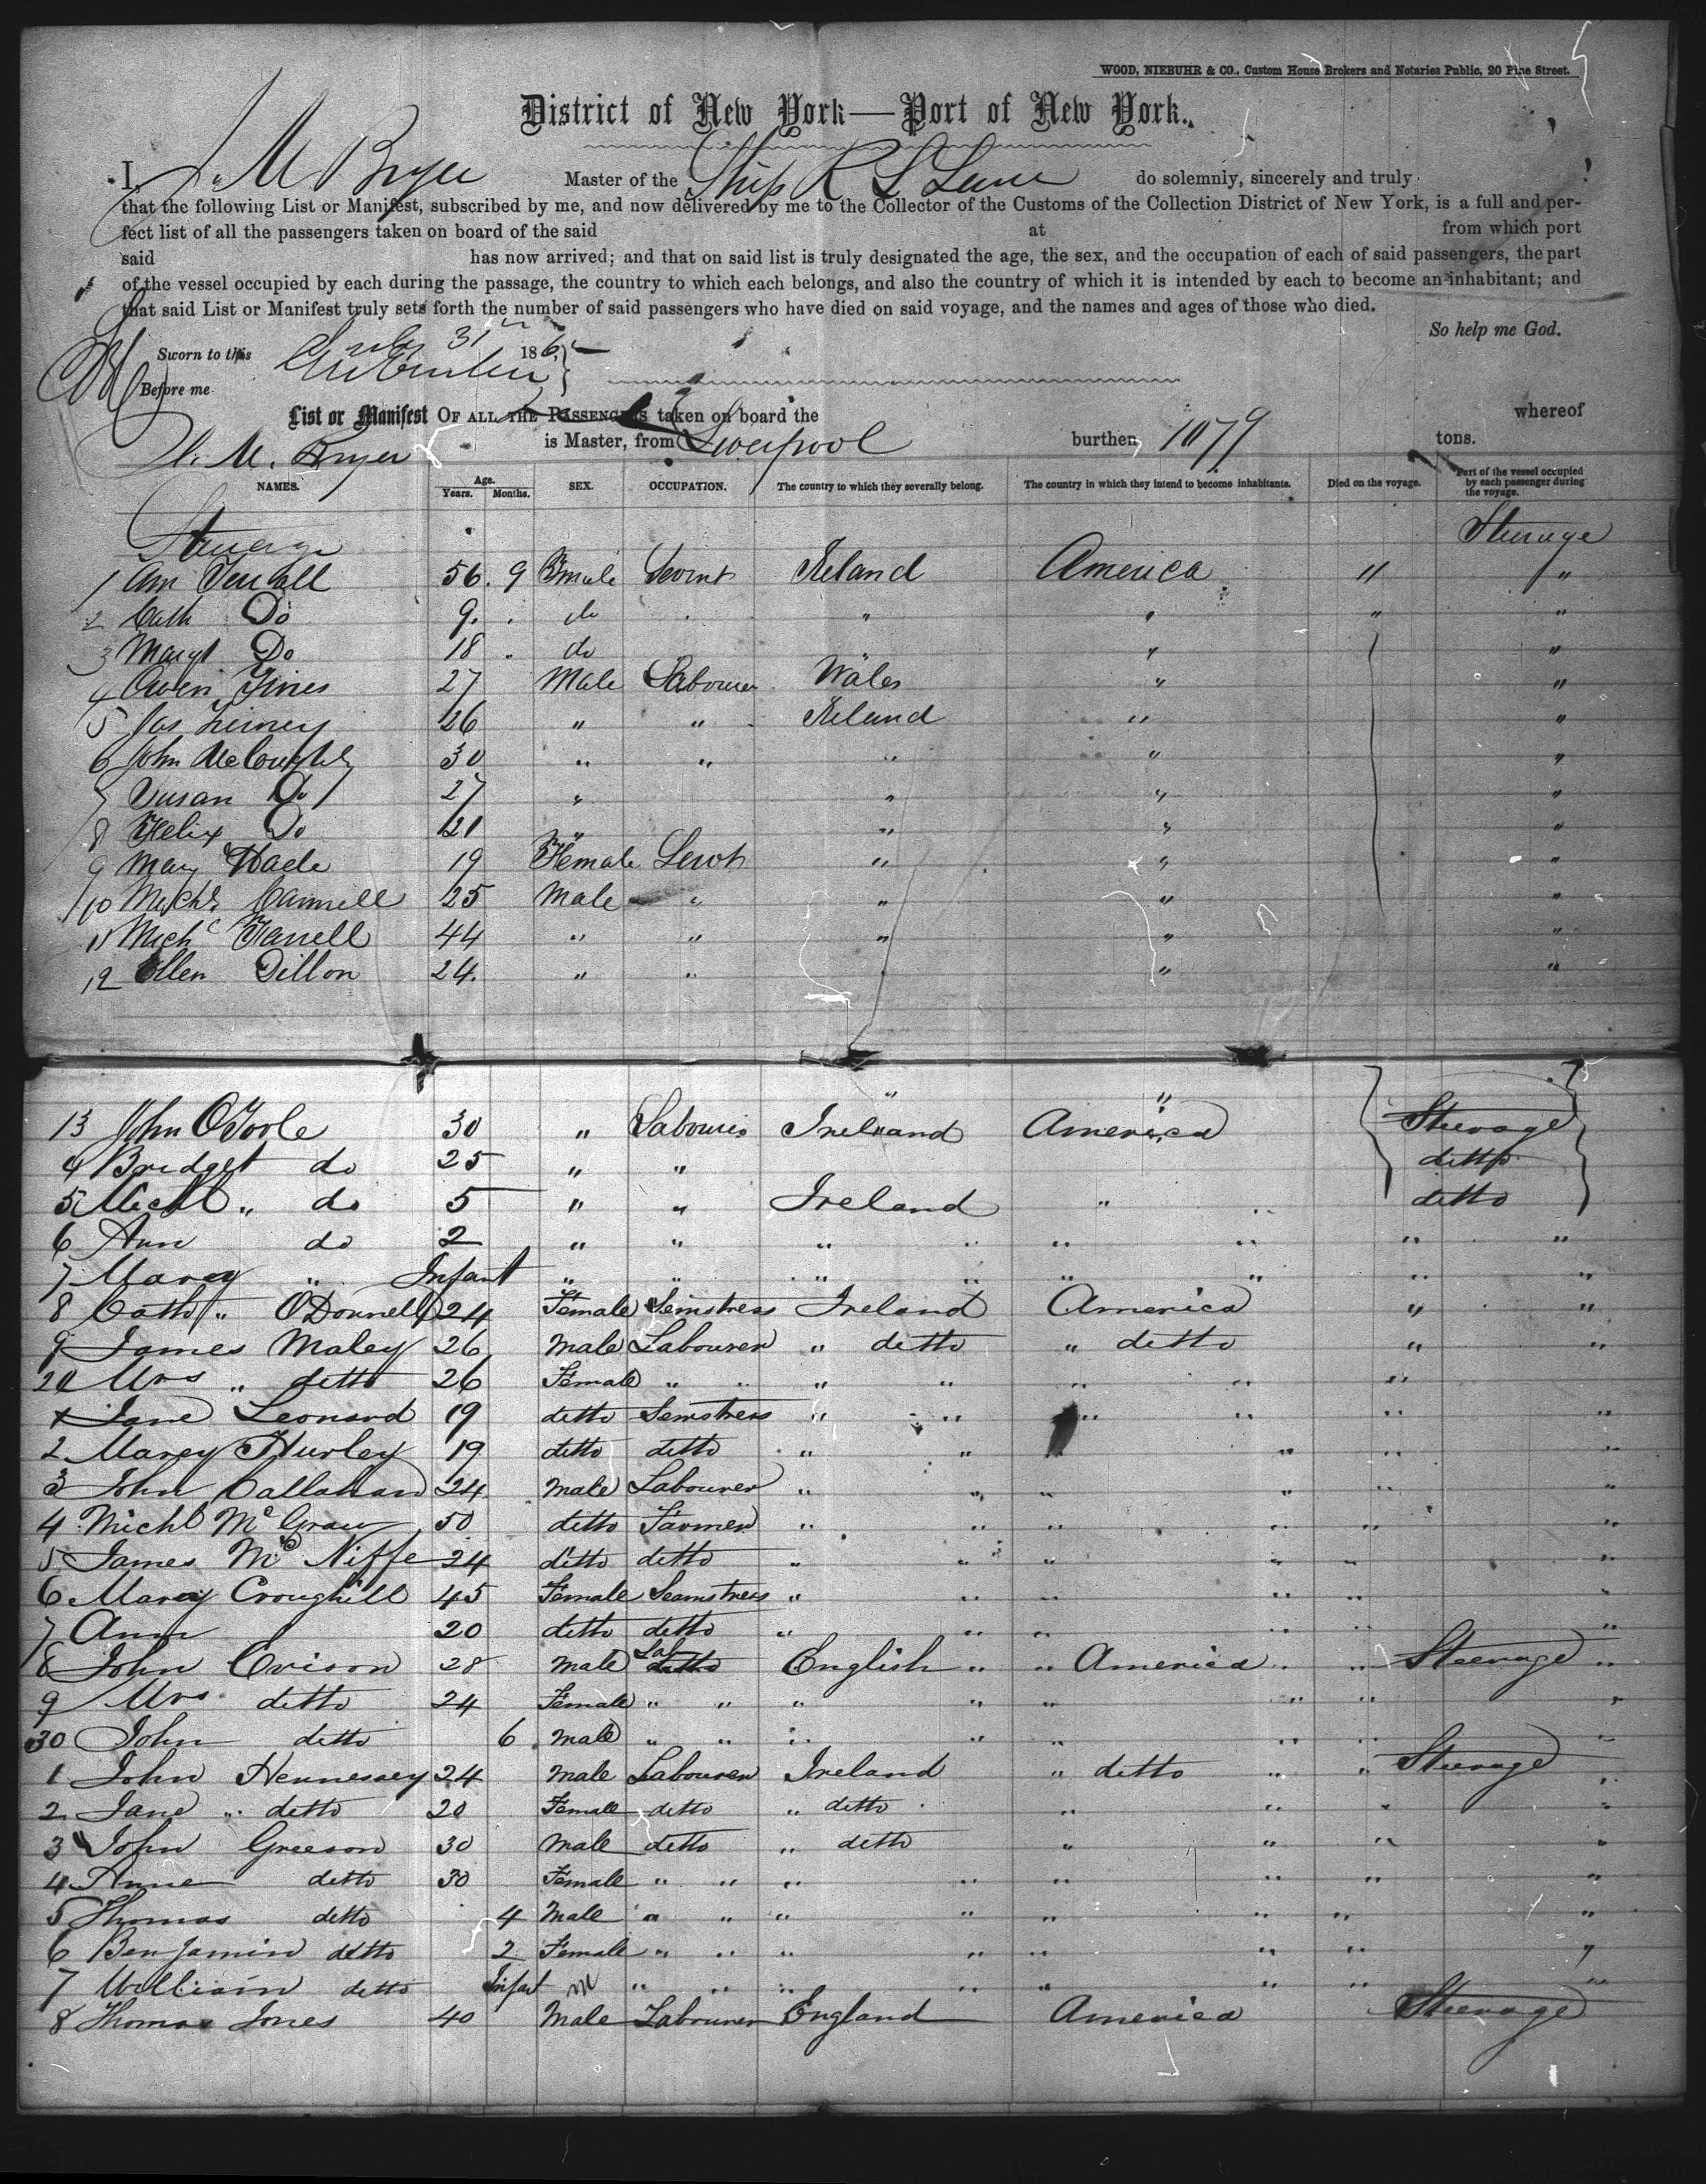 WOOD, NIEBUHR & CO., Custom House Brokers and Notaries Public, 20 Pine Street.
District of New York—Port of New York.
I, M Bryer Master of the Ship R L Lane do solemnly, sincerely and truly
that the following List or Manifest, subscribed by me, and now delivered by me to the Collector of the Customs of the Collection District of New York, is a full and per-
fect list of all the passengers taken on board of the said at from which port
said has now arrived; and that on said list is truly designated the age, the sex, and the occupation of each of said passengers, the part
of the vessel occupied by each during the passage, the country to which each belongs, and also the country of which it is intended by each to become an inhabitant; and
that said List or Manifest truly sets forth the number of said passengers who have died on said voyage, and the names and ages of those who died.
So help me God.
Sworn to this 31 186
Before me
List or Manifest OF ALL THE PASSENGERS taken on board the whereof
M. Bryer is Master, from Liverpool burthen 1079 tons.
NAMES. Age. Years. Months. SEX. OCCUPATION. The country to which they severally belong. The country in which they intend to become inhabitants. Died on the voyage. Part of the vessel occupied by each passenger during the voyage.
Steerage Steerage
1 Ann 56. 9 Female Servt Ireland America " "
2 Cath Do 9. do " " " "
3 Margt Do 18 do " " "
4 Owen Jines 27 Male Labourer Wales " "
5 Jas Tierney 26 " " Ireland " "
6 John 30 " " " " "
7 Susan Do 27 " " " "
8 Felix Do 21 " " " "
9 Mary 19 Female Servt " " "
10 Michl. Cammell 25 Male " " " "
11 Michl Farrell 44 " " " " "
12 Ellen Dillon 24. " " " "
" "
13 John O'Toole 30 " Labourer Ireland America Steerage
4 Bridget do 25 " " ditto
5 Michl " do 5 " " Ireland " " ditto
6 Ann do 2 " " " " " " " "
7 Marey " Infant " " " " " " " "
8 Cath " O'Donnell 24 Female Semstress Ireland America " "
9 James Maley 26 Male Labourer " ditto " ditto " "
20 Mrs " ditto 26 Female " " " " " " "
1 Jane Leonard 19 ditto Semstress " " " " " "
2 Marey Hurley 19 ditto ditto " " " " " "
3 John Callahan 24 Male Labourer " " " " " "
4 Michl McGraw 50 ditto Farmer " " " " "
5 James McNiffe 24 ditto ditto " " " " " "
6 Marey Croughill 45 Female Seamstress " " " " " "
7 Ann 20 ditto ditto " " " " " "
8 John Orison 28 Male Lab ditto English " " America " " Steerage "
9 Mrs ditto 24 Female " " " " " " " "
30 John ditto 6 Male " " " " " " " "
1 John Hennessey 24 Male Labourer Ireland " ditto " " Steerage "
2 Jane " ditto 20 Female ditto " ditto " " " "
3 John Greeson 30 Male ditto " ditto " " " "
4 Anne ditto 30 Female " " " " " " " "
5 Thomas ditto 4 Male " " " " " " " "
6 Benjamin ditto 2 Female " " " " " " " "
7 William ditto Infant M " " " " " " " "
8 Thomas Jones 40 Male Labourer England America Steerage